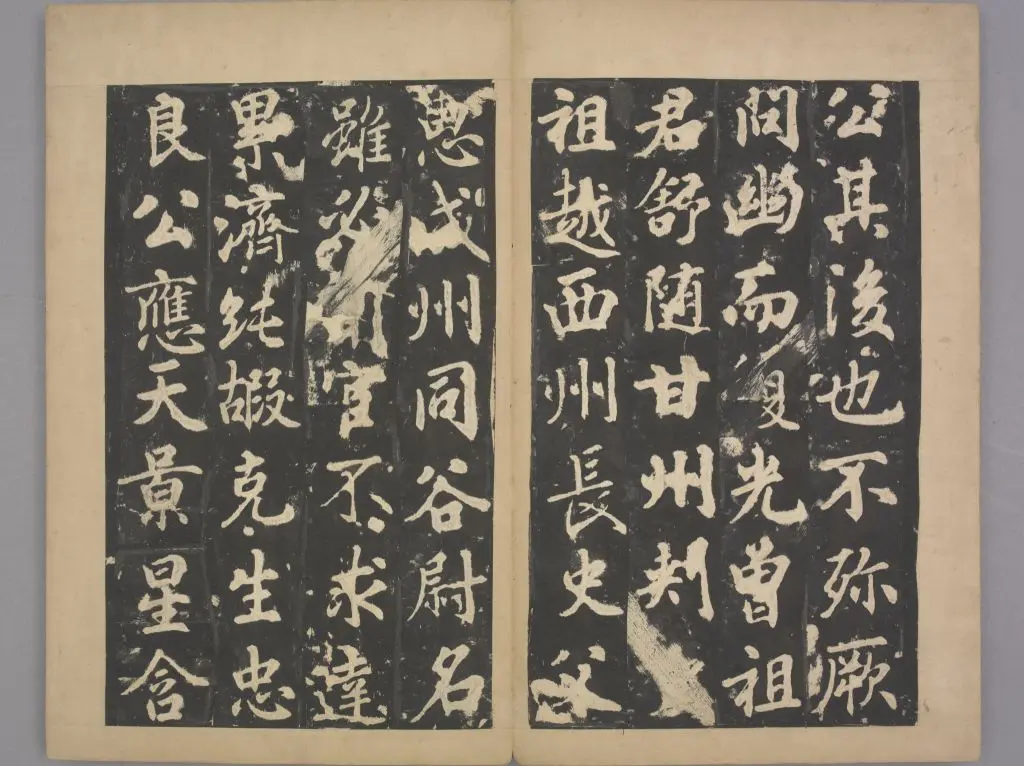 公其後也不弥厥
問幽而復光曾祖
君舒随甘州刾
祖越西州長史父
恵成州同谷尉名
雖官不求達
累濟純嘏克生忠
良公應天景星含